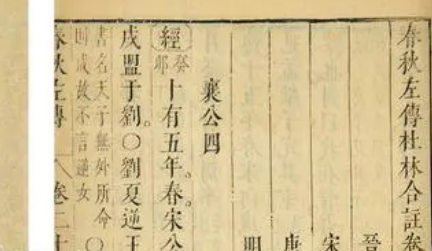 春秋左傳杜林合註卷
晉
宋
唐
明
襄公四
經癸卯十有五年。春。宋公
戌盟于劉〇劉夏逆王
書名天子無外所命〇
則成故不言逆女
春秋左傳 卷二十